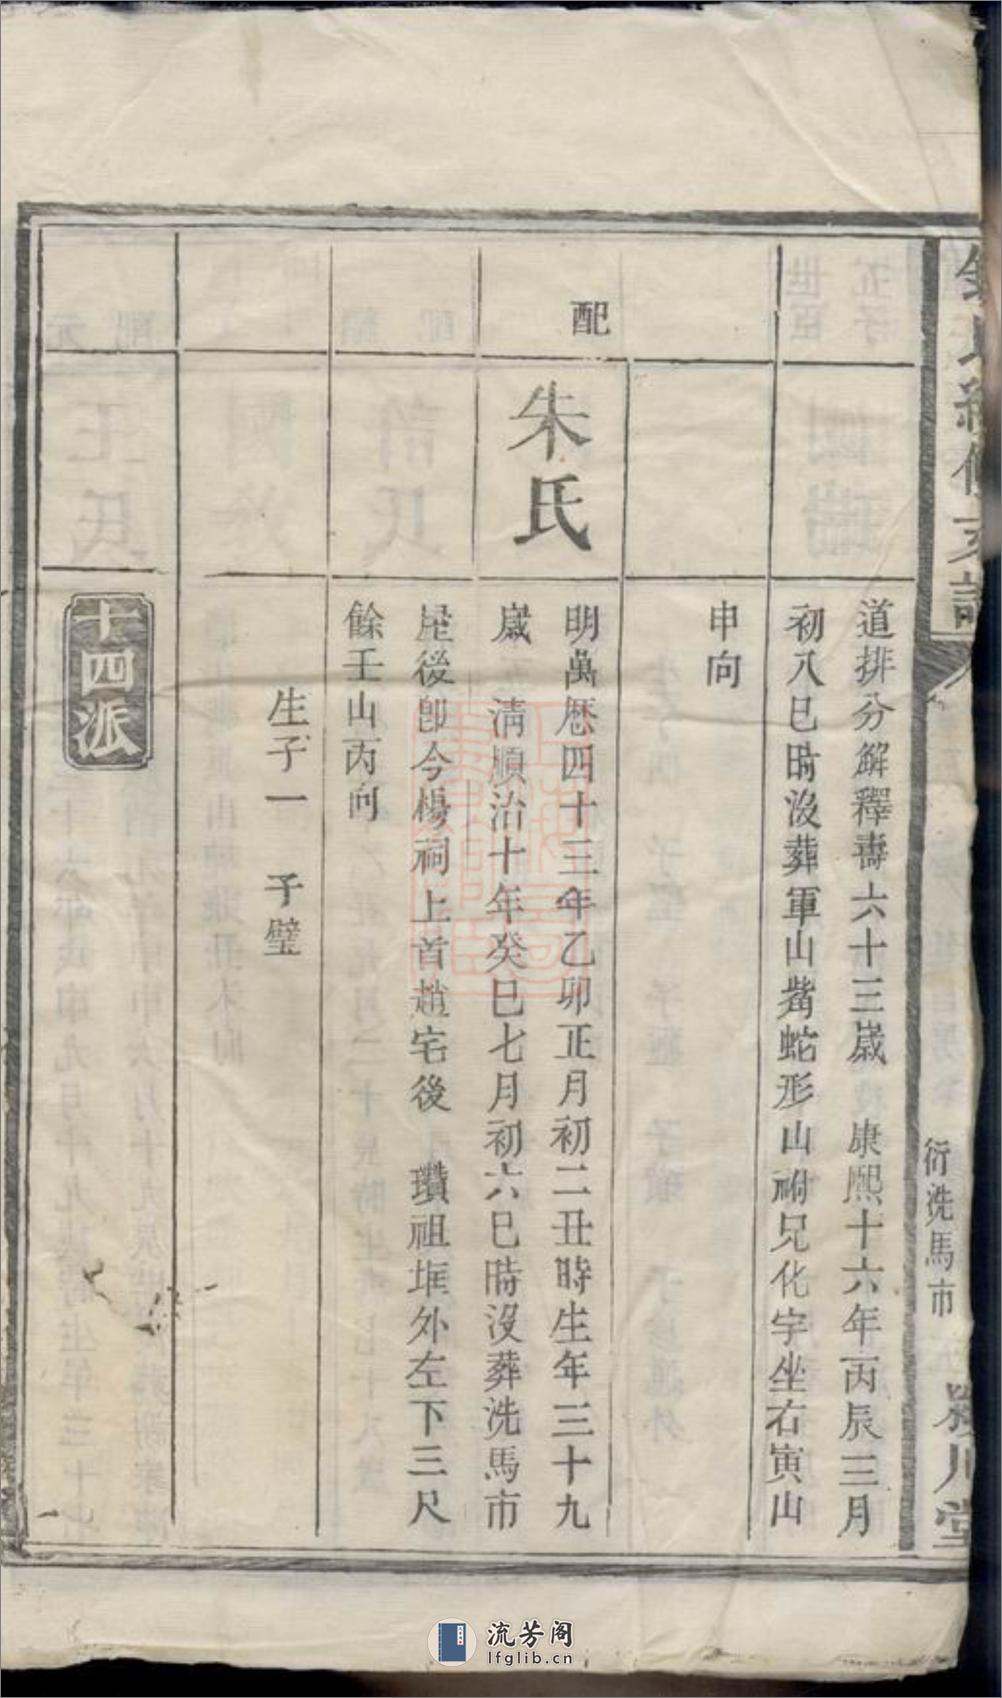 道排分解釋壽六十三歲 康熙十六年丙辰三月
初八巳時沒葬軍山嘴蛇形山祔兄化宇坐右寅山
申向
配
朱氏
明萬歷四十三年乙卯正月初二丑時生年三十九
歲 清順治十年癸巳七月初六巳時沒葬洗馬市
後卽今楊祠上首趙宅後 瓚祖塋外左下三尺
餘壬山丙向
生子一 子璧
十四派
衍洗馬市
川堂
流芳阁
lfglib.cn